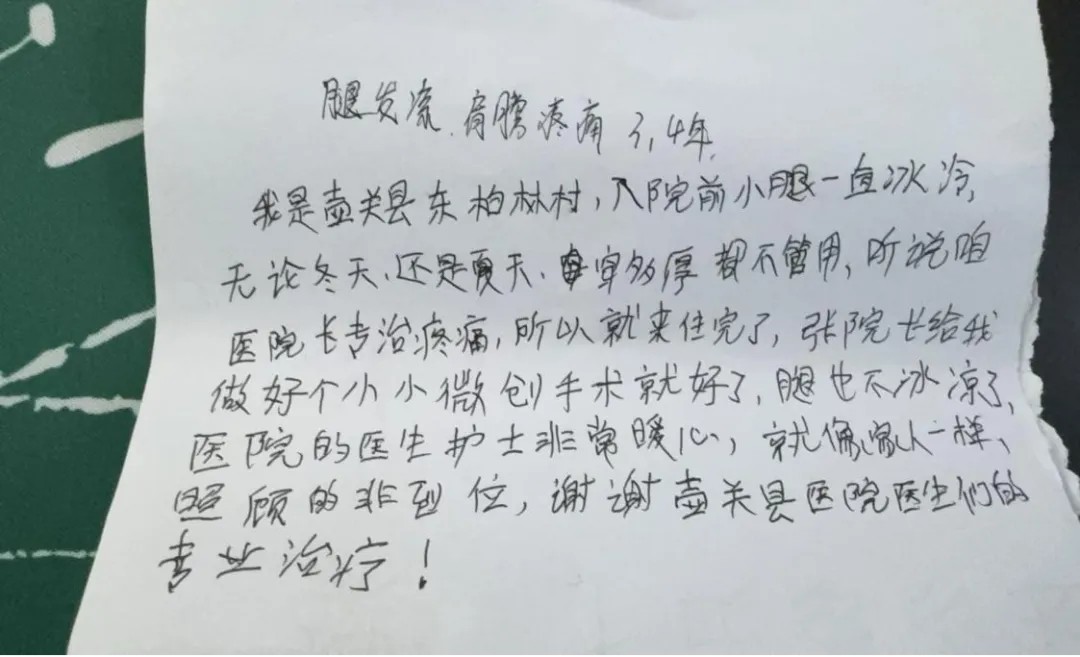 腿发凉、肩膀疼痛3,4年,
我是壶关县东柏林村,入院前小腿一直冰冷,
无论冬天、还是夏天、穿多厚都不管用,听说咱
医院长专治疼痛,所以就来住完了,张院长给我
做好个小小微创手术就好了,腿也不冰凉了,
医院的医生护士非常暖心,就像家人一样、
照顾的非到位,谢谢壶关县医院医生们的
专业治疗!